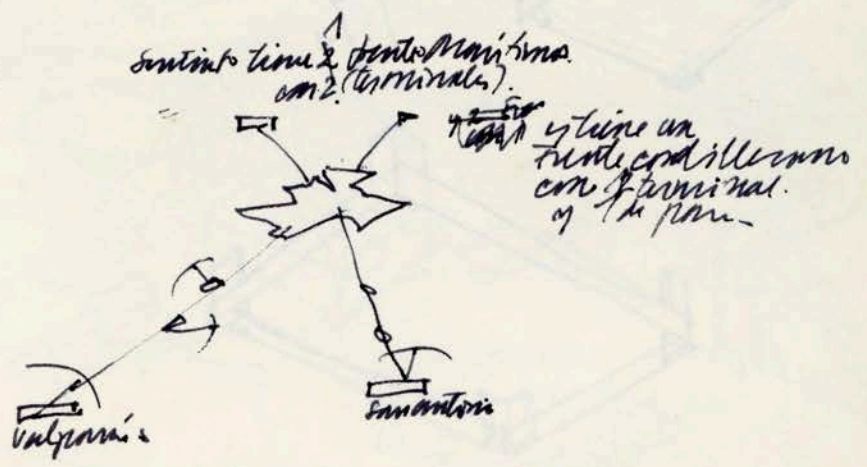 1
Santiago tiene 2 frentes Marítimos
con 2 (terminales).
y tiene un
frente cordillerano
con 1 terminal.
y 1 de
San Antonio
Valparaís.